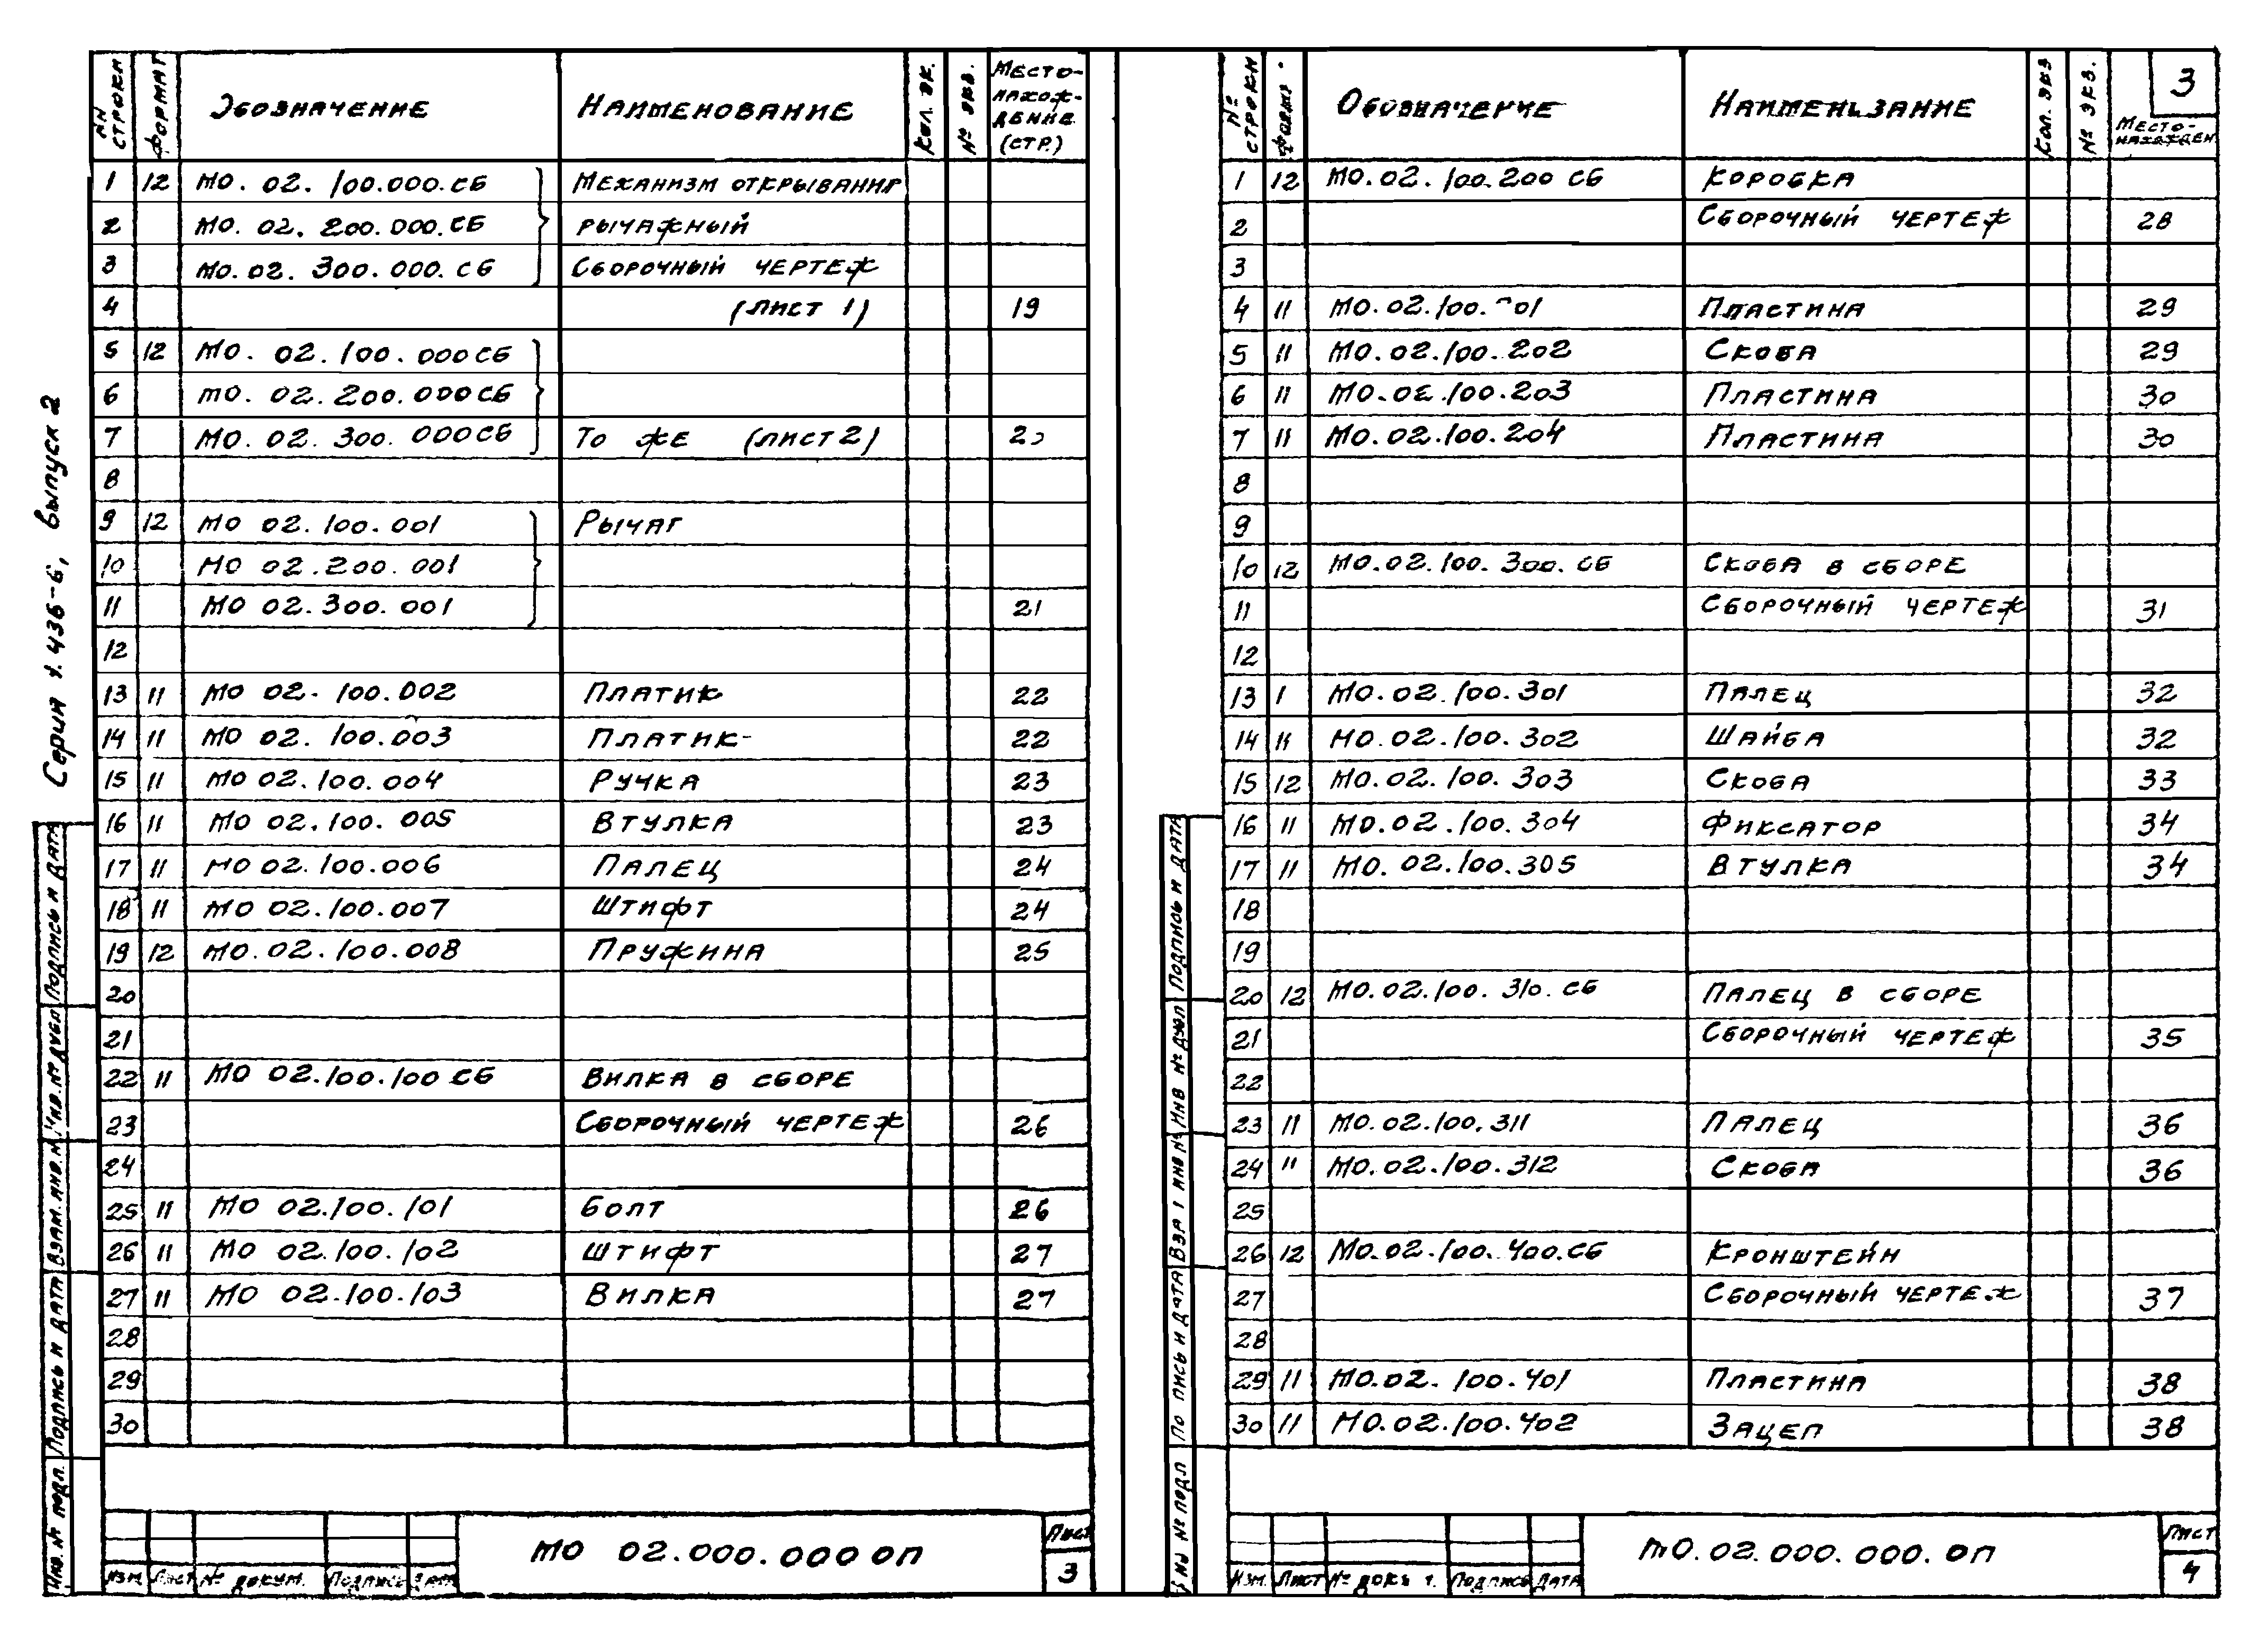 Серия 1.436-6, выпуск 2
№№ СТРОКИ ФОРМАТ ОБОЗНАЧЕНИЕ НАИМЕНОВАНИЕ КОЛ. ЭК. № ЭКЗ. МЕСТО-
НАХОЖ-
ДЕНИЕ
(СТР.)
1 12 МО. 02. 100.000.СБ МЕХАНИЗМ ОТКРЫВАНИЯ
2 МО. 02. 200.000.СБ РЫЧАЖНЫЙ
3 МО. 02. 300.000.СБ СБОРОЧНЫЙ ЧЕРТЕЖ
4 (ЛИСТ 1) 19
5 12 МО. 02.100.000СБ
6 МО. 02.200.000СБ
7 МО. 02. 300.000СБ ТО ЖЕ (ЛИСТ 2)
8
9 12 МО 02.100.001 РЫЧАГ
10 МО 02.200.001
11 МО 02.300.001 21
12
13 11 МО 02.100.002 ПЛАТИК 22
14 11 МО 02.100.003 ПЛАТИК 22
15 11 МО 02.100.004 РУЧКА 23
16 11 МО 02.100.005 ВТУЛКА 23
17 11 МО 02.100.006 ПАЛЕЦ 24
18 11 МО 02.100.007 ШТИФТ 24
19 12 МО.02.100.008 ПРУЖИНА 25
20
21
22 11 МО 02.100.100 СБ ВИЛКА В СБОРЕ
23 СБОРОЧНЫЙ ЧЕРТЕЖ 26
24
25 11 МО 02.100.101 БОЛТ 26
26 11 МО 02.100.102 ШТИФТ 27
27 11 МО 02.100.103 ВИЛКА 27
28
29
30
ИНВ. № ПОДЛ. ПОДПИСЬ И ДАТА ВЗАМ. ИНВ. № ИНВ. № ДУБЛ ПОДПИСЬ И ДАТА
ИЗМ ЛИСТ № ДОКУМ. ПОДПИСЬ ДАТА
МО 02.000.000 ОП
ЛИСТ
3
3
№ СТРОКИ ОБОЗНАЧЕНИЕ КОЛ. ЭКЗ № ЭКЗ. МЕСТО-
НАХОЖДЕН.
1 12 МО.02.100.200 СБ КОРОБКА
2 СБОРОЧНЫЙ ЧЕРТЕЖ 28
3
4 11 ПЛАСТИНА 29
5 11 МО.02.100.202 СКОБА 29
6 11 МО.02.100.203 ПЛАСТИНА 30
7 11 МО.02.100.204 ПЛАСТИНА 30
8
9
10 12 МО.02.100.300.СБ СКОБА В СБОРЕ
11 СБОРОЧНЫЙ ЧЕРТЕЖ 31
12
13 1 МО.02.100.301 ПАЛЕЦ 32
14 11 МО.02.100.302 ШАЙБА 32
15 12 МО.02.100.303 СКОБА 33
16 11 МО.02.100.304 ФИКСАТОР 34
17 11 МО.02.100.305 ВТУЛКА 34
18
19
20 12 МО.02.100.310.СБ ПАЛЕЦ В СБОРЕ
21 СБОРОЧНЫЙ ЧЕРТЕЖ 35
22
23 11 МО.02.100.311 ПАЛЕЦ 36
24 11 МО.02.100.312 СКОБА 36
25
26 12 МО.02.100.400.СБ КРОНШТЕЙН
27 СБОРОЧНЫЙ ЧЕРТЕЖ 37
28
29 11 МО.02.100.401 ПЛАСТИНА 38
30 11 МО.02.100.402 ЗАЦЕП 38
№ ПОДЛ ПИСЬ И ДАТА ИНВ № ИНВ № ДУБЛ ПОДПИСЬ И ДАТА
ИЗМ. ЛИСТ № ПОДПИСЬ ДАТА
МО.02.000.000.ОП
ЛИСТ
4